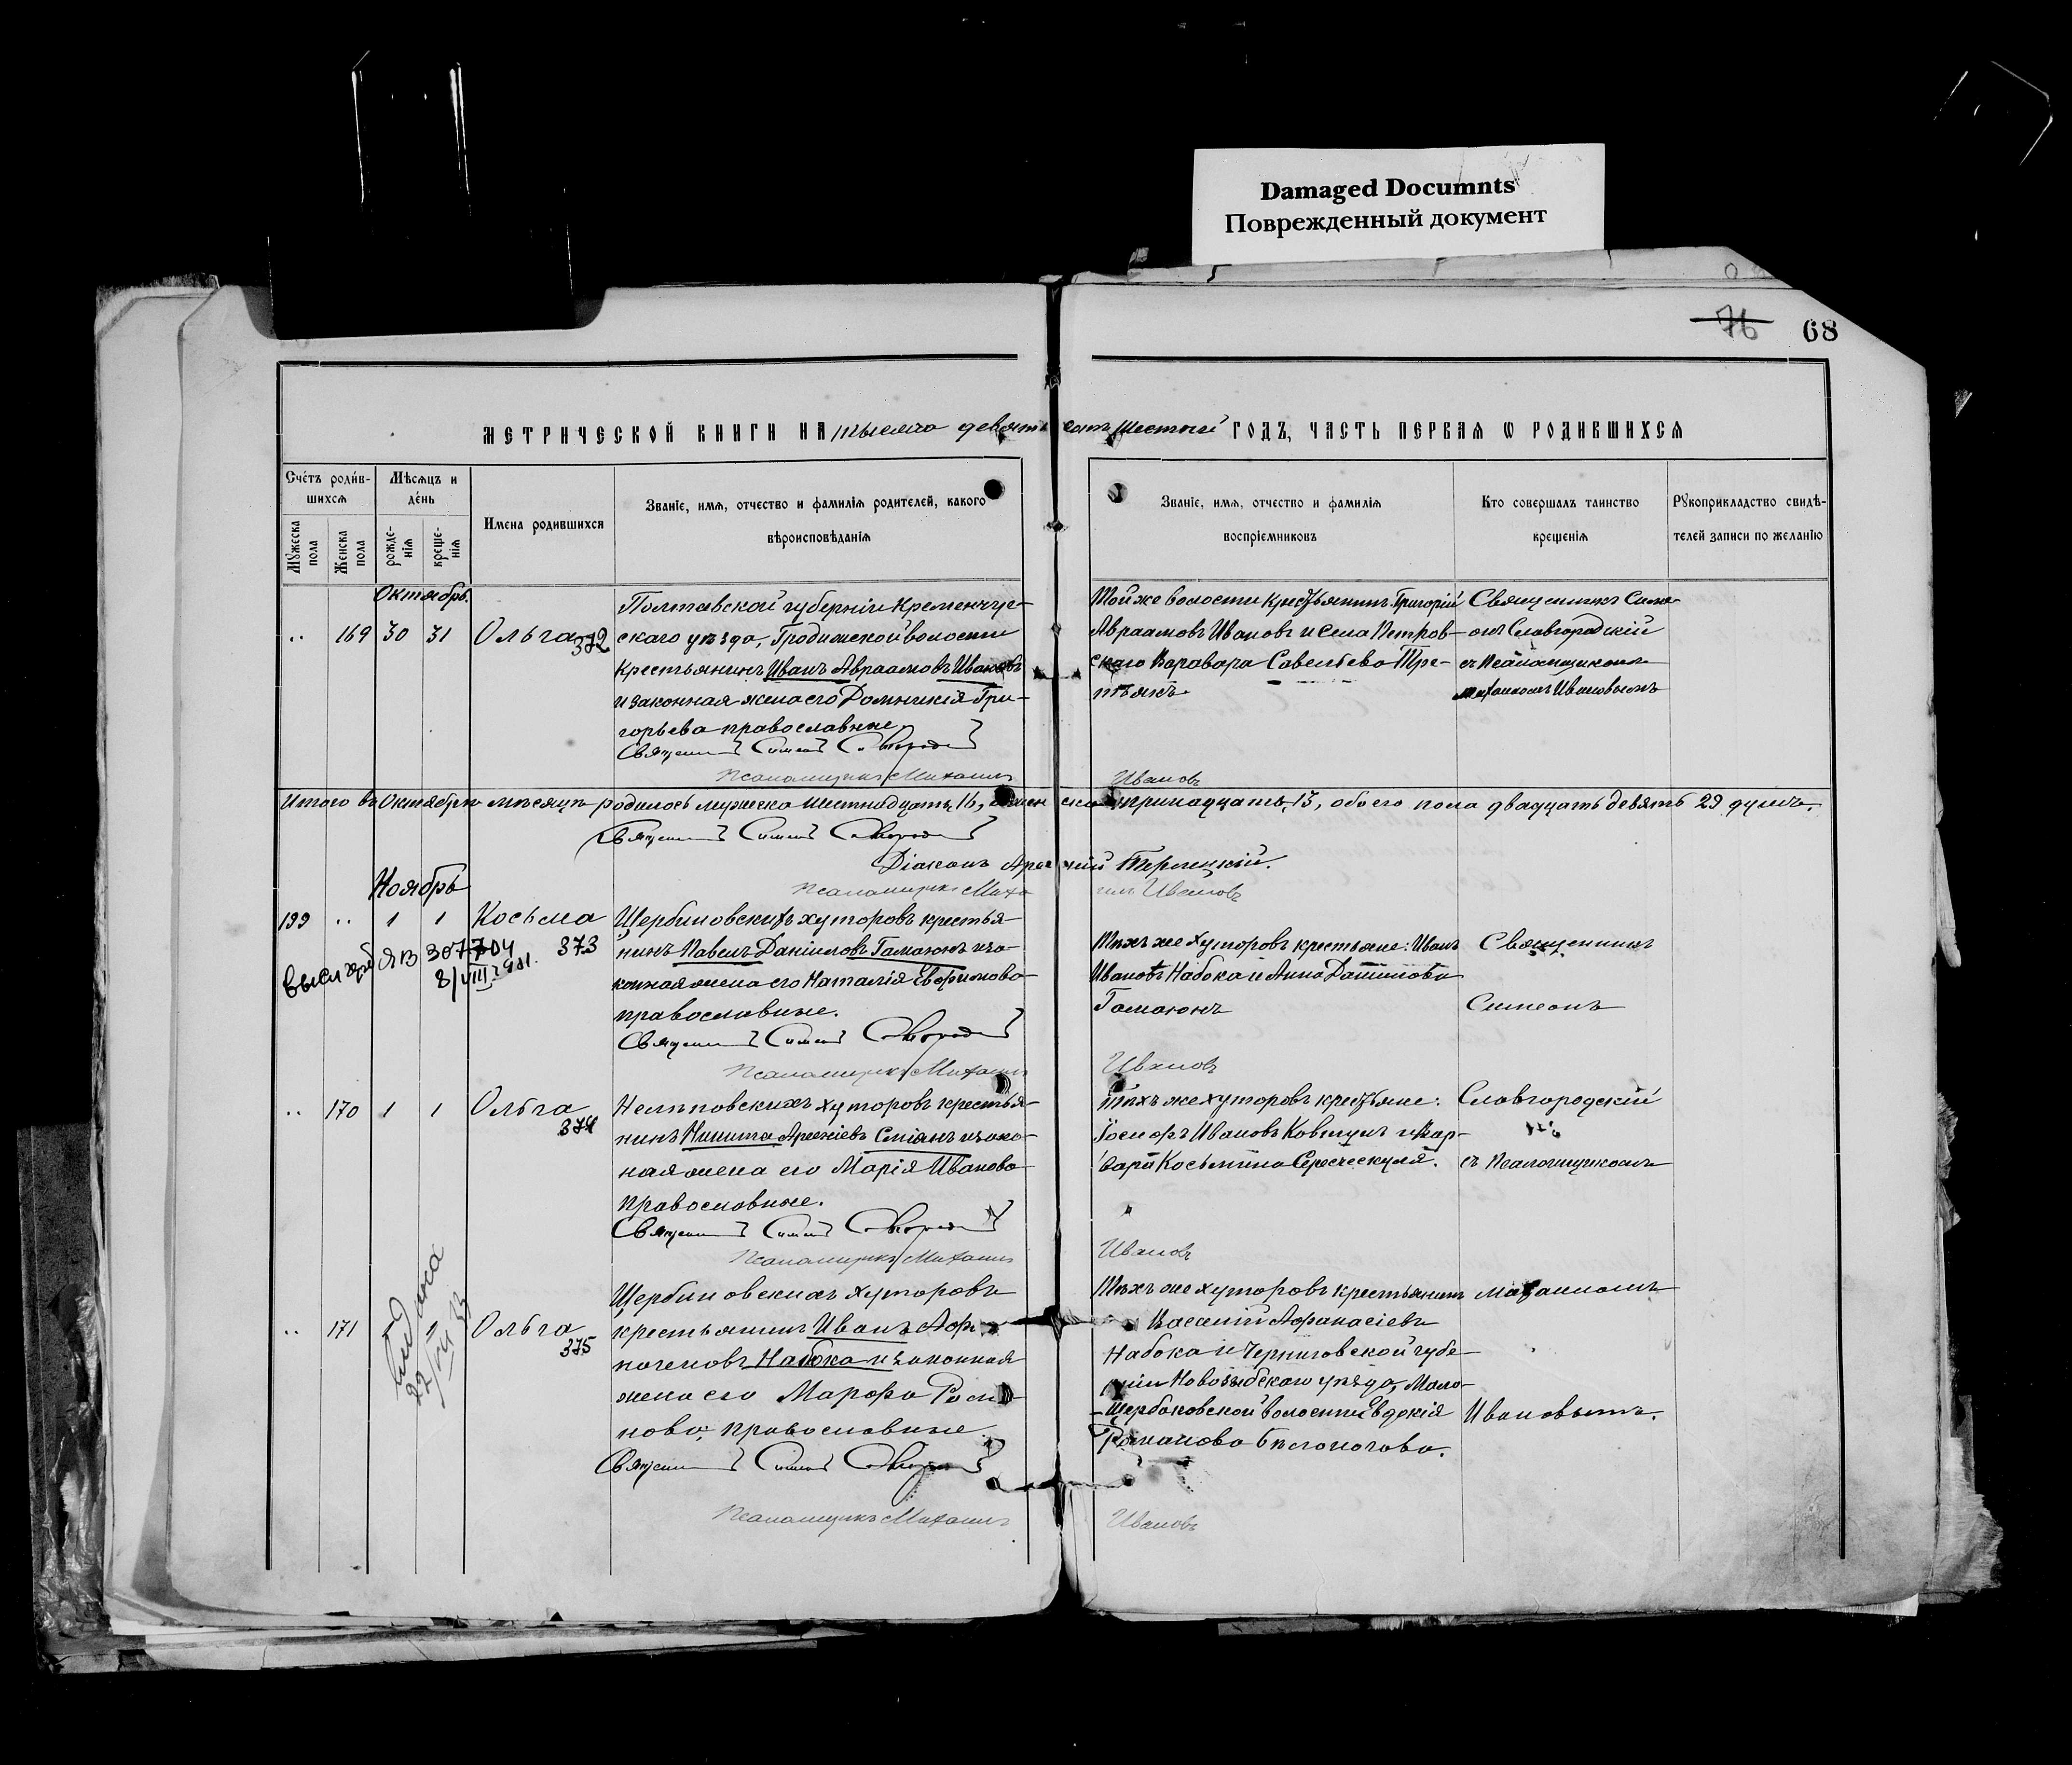 Damaged Documnts
Поврежденный документ
76 68
МЕТРИЧЕСКОЙ КНИГИ НА тысяча девятьсотъ шестый ГОДЪ, ЧАСТЬ ПЕРВАЯ Ѡ РОДИВШИХСЯ
Счетъ родив-
шихся
Мужеска пола
Женска пола
Мѣсяцъ и
день
рожде-
нія
креще-
нія
Имена родившихся
Званіе, имя, отчество и фамилія родителей, какого
вѣроисповѣданія
Званіе, имя, отчество и фамилія
воспріемниковъ
Кто совершалъ таинство
крещенія
Рукоприкладство свидѣ-
телей записи по желанію
Октябрь.
.. 169 30 31 Ольга
372
Полтавской губерніи Кременчуг-
скаго уѣзда, Градижской волости
крестьянинъ Иванъ Авраамовъ Ивановъ
и законная жена его Домникія Гри-
горьева православные
Псаломщикъ Михаилъ Ивановъ
Той же волости крестьянинъ Григорій
Авраамовъ Ивановъ и села Петров-
скаго Варвара Савельева Тре-
тьякъ
Священникъ Симе-
онъ Славгородскій
съ Псаломщикомъ
Михаиломъ Ивановымъ
Итого въ Октябрѣ мѣсяцѣ родилось мужеска шестнадцать 16, женска тринадцать, 13, обоего пола двадцать девять 29 душъ.
Діаконъ
Псаломщикъ Михаилъ Ивановъ
Ноябрь
199 .. 1 1 Косьма
373
ЯВ 307704
8/VIII 1981.
Щербиновскихъ хуторовъ крестья-
нинъ Павелъ Даніиловъ Гамаюнъ и за-
конная жена его Наталія Евфимова
православные.
Псаломщикъ Михаилъ Ивановъ
Тѣхъ же хуторовъ крестьяне: Иванъ
Ивановъ Набока и Анна Даніилова
Гамаюнъ
Священникъ
Симеонъ
.. 170 1 1 Ольга
374
Нелѣповскихъ хуторовъ крестья-
нинъ Никита Арсеніевъ Сміянъ и закон-
ная жена его Марія Иванова
православные.
Псаломщикъ Михаилъ Ивановъ
Тѣхъ же хуторовъ крестьяне:
Іосифъ Ивановъ Ковтунъ и Вар-
вара Косьмина
Славгородскій
съ Псаломщикомъ
.. 171 Ольга
375
Щербиновскихъ хуторовъ
крестьянинъ Иванъ
Набока и законная
жена его Марфа Рома-
нова, православные
Псаломщикъ Михаилъ Ивановъ
Тѣхъ же хуторовъ крестьянинъ
Василій Афанасіевъ
Набока и Черниговской губер-
ніи Новозыбскаго уѣзда, Мало-
Щербаковской волости Евдокія
Романова Бѣлоногова.
Михаиломъ
Ивановымъ.